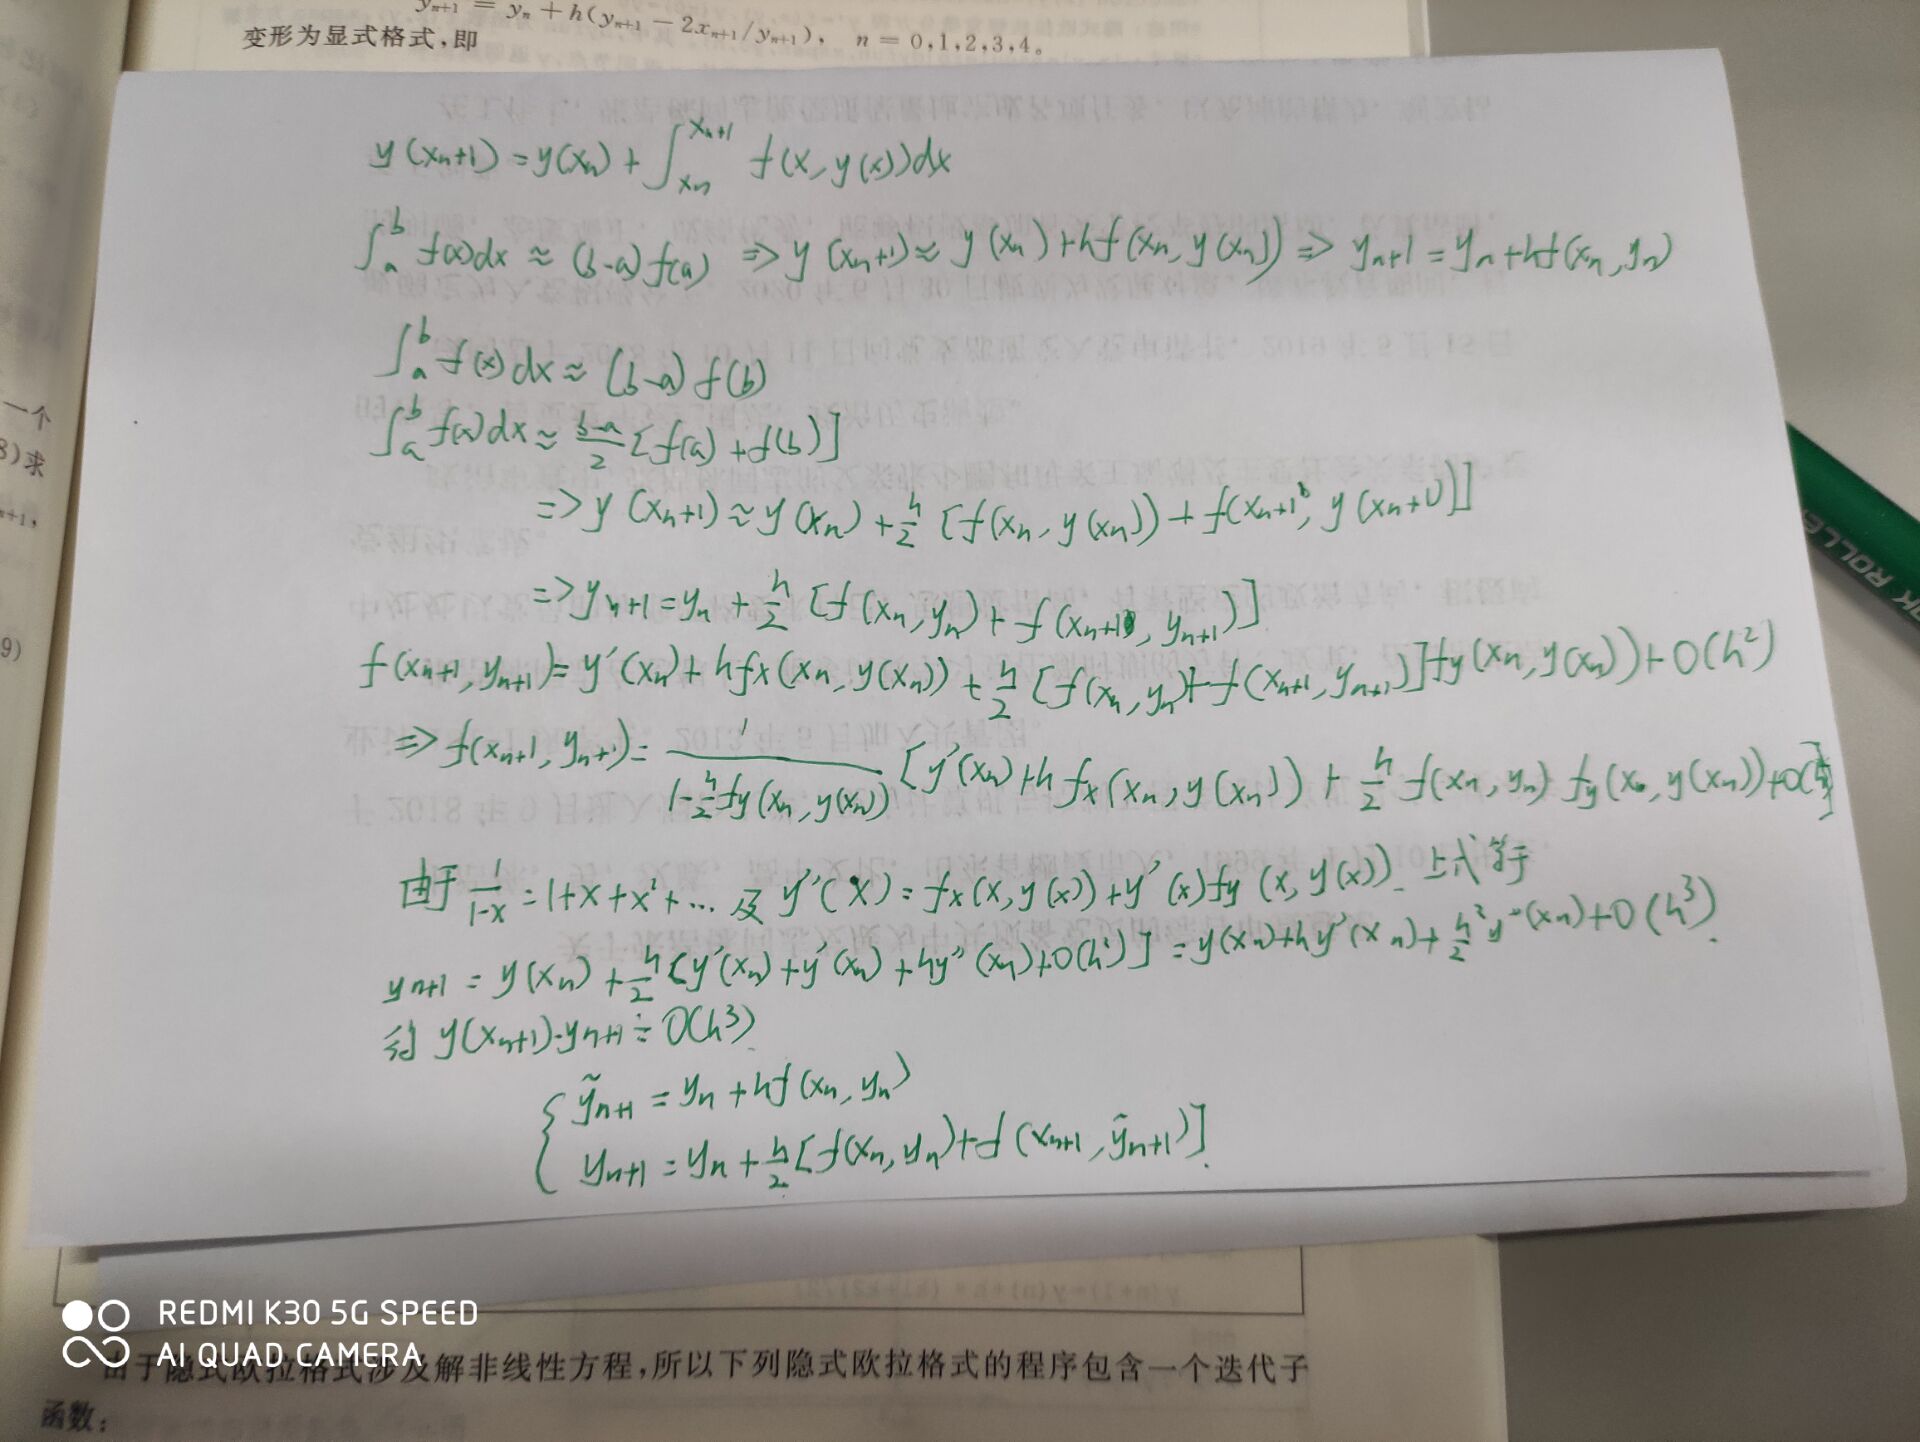 y_{n+1} = y_n + h(y_{n+1} - 2x_{n+1}/y_{n+1}), n = 0,1,2,3,4。
变形为显式格式,即
y(x_{n+1}) = y(x_n) + ∫_{x_n}^{x_{n+1}} f(x, y(x))dx
∫_a^b f(x)dx ≈ (b-a)f(a) ⇒ y(x_{n+1}) ≈ y(x_n) + hf(x_n, y(x_n)) ⇒ y_{n+1} = y_n + hf(x_n, y_n)
∫_a^b f(x)dx ≈ (b-a)f(b)
∫_a^b f(x)dx ≈ \frac{b-a}{2}[f(a)+f(b)]
⇒ y(x_{n+1}) ≈ y(x_n) + \frac{h}{2}[f(x_n, y(x_n)) + f(x_{n+1}, y(x_{n+1}))]
⇒ y_{n+1} = y_n + \frac{h}{2}[f(x_n, y_n) + f(x_{n+1}, y_{n+1})]
f(x_{n+1}, y_{n+1}) = y'(x_n) + hf_x(x_n, y(x_n)) + \frac{h}{2}[f(x_n, y_n) + f(x_{n+1}, y_{n+1})]f_y(x_n, y(x_n)) + O(h^2)
⇒ f(x_{n+1}, y_{n+1}) = \frac{1}{1-\frac{h}{2}f_y(x_n, y(x_n))}[y'(x_n) + hf_x(x_n, y(x_n)) + \frac{h}{2}f(x_n, y_n)f_y(x_n, y(x_n)) + O(h^2)]
由于 \frac{1}{1-x} = 1+x+x^2+… 及 y''(x) = f_x(x, y(x)) + y'(x)f_y(x, y(x)). 上式等于
y_{n+1} = y(x_n) + \frac{h}{2}[y'(x_n) + y'(x_n) + hy''(x_n) + O(h^2)] = y(x_n) + hy'(x_n) + \frac{h^2}{2}y''(x_n) + O(h^3).
约 y(x_{n+1}) - y_{n+1} = O(h^3)
{ ỹ_{n+1} = y_n + hf(x_n, y_n)
y_{n+1} = y_n + \frac{h}{2}[f(x_n, y_n) + f(x_{n+1}, ỹ_{n+1})].
一个
8)求
n+1,
9)
ROLLE
REDMI K30 5G SPEED
AI QUAD CAMERA
由于隐式欧拉格式涉及解非线性方程,所以下列隐式欧拉格式的程序包含一个迭代子
函数: